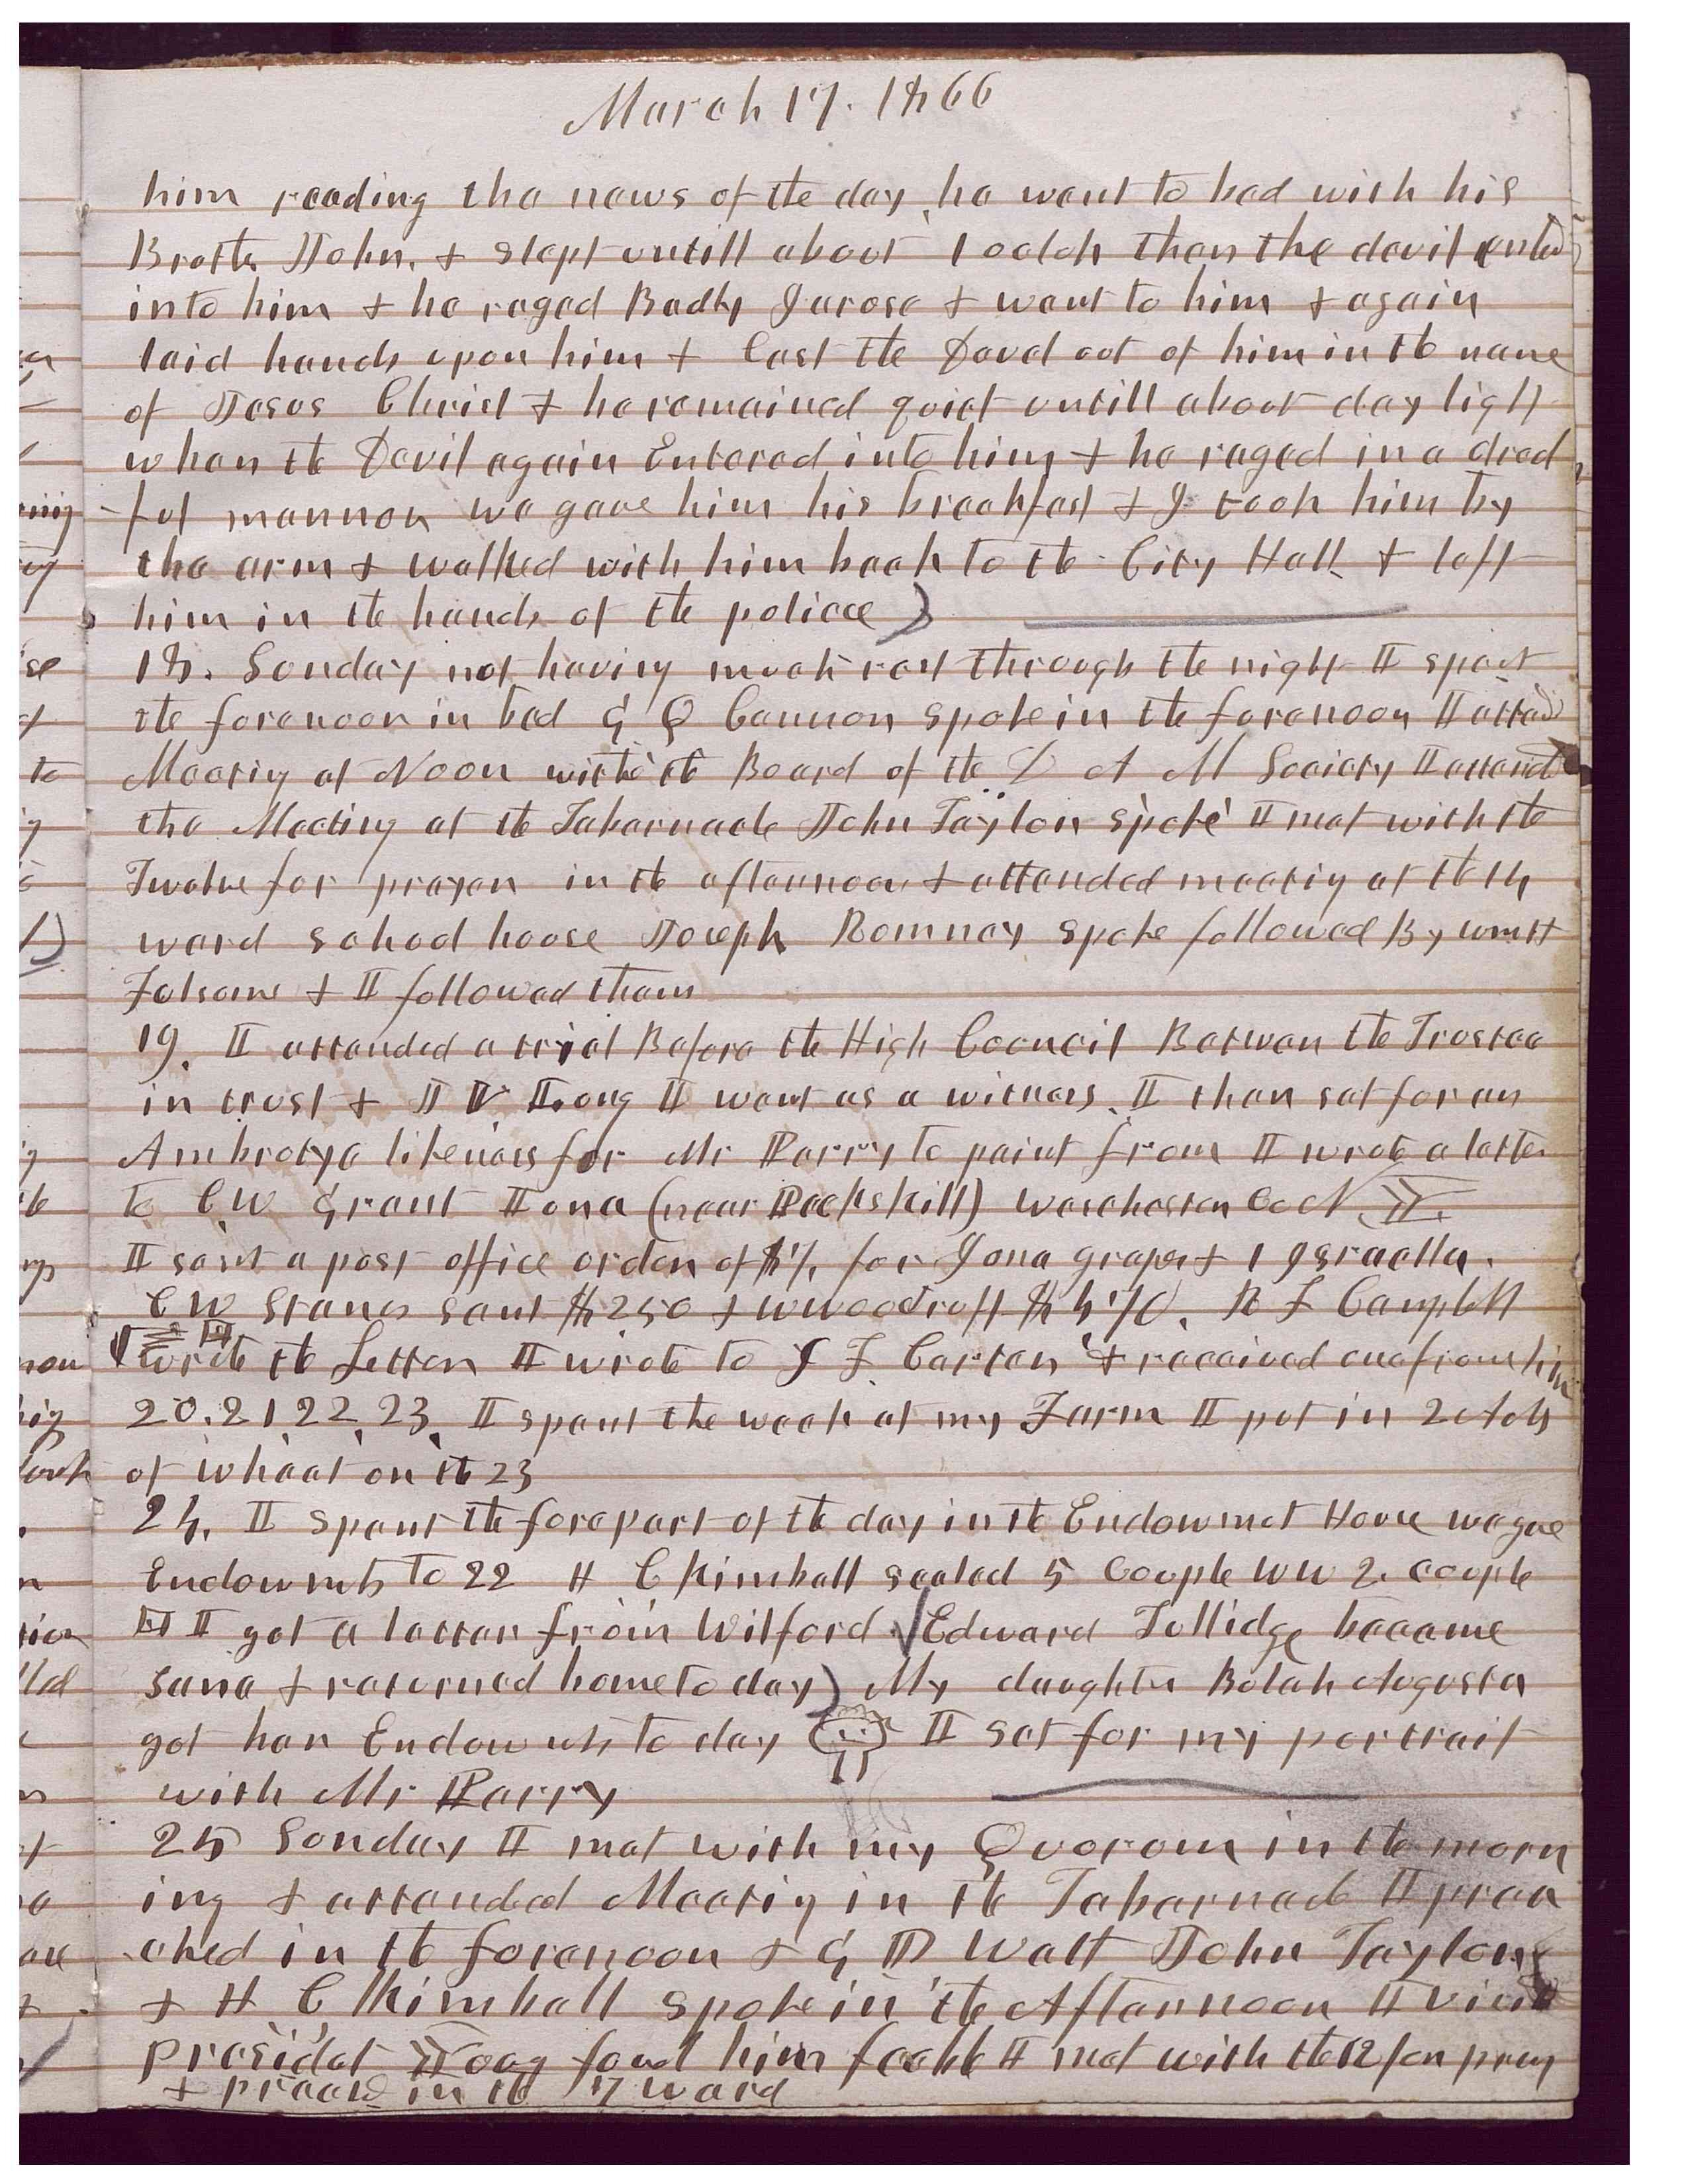 March 17. 1866
him reading the news of the day, he went to bed with his
Brothr John. & Slept untill about 1 oclok then the devil enterd
into him & he raged Badly I arose & went to him & again
laid hands upon him & Cast the Devel out of him in the name
of Jesus Christ & he remained quiet untill about day light
when the Devil again Entered into him & he raged in a dred
-ful manner we gave him his breakfast & I took him by
the arm & walked with him back to the City Hall & left
him in the hands of the police)
18. Sunday not having much rest through the night I spent
the forenoon in bed G Q Cannon spoke in the forenoon I attend
Meetig at Noon with the Board of the D A M Society I attend
the Meeting at the Tabernacle John Taylor spoke I met with the
Twelve for prayer in the afternoon & attended meetig at the 14
ward school house Joseph Romney spoke followed By Wm H
Folsome & I followed them
19. I attended a trial Before the High Council Betwen the Trustee
in trust & J V Long I went as a witness. I then sat for an
Ambrotype likeness for Mr Parry to paint from I wrote a letter
to C W Grant Iona (near Peekskill) Weschester Co N. Y.
I sent a post office order of $7, for Iona grapes & 1 Israella.
C W Stanes sent $250 & W Woodruff $4 70. R L Campbell
wrote the Letter I wrote to J F Carter & received one from him
20. 21, 22, 23, I spent the week at my Farm I put in 2 Acks
of wheat on the 23
24. I spent the forepart of the day in the Endowmet House we gave
Endowmts to 22 H C Kimball sealed 5 Couple WW 2. couple
I got a letter from Wilford √ Edward Tullidge became
sane & returned home to day) My daughter Bulah Augusta
got her Endowmts to day I sat for my portrait
with Mr Parry
25 Sunday I met with my Quorum in the morn
ing & attended Meetig in the Tabernacle I prea
ched in the forenoon & G D Watt John Taylor
& H C Kimball spoke in the Afternoon I visit
presidet Young found him feeble I met with the 12 for pray
& preach in the 17 ward